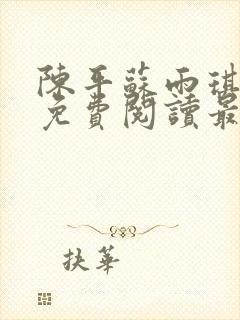 陳平蘇雨琪
免費閱讀最
扶華